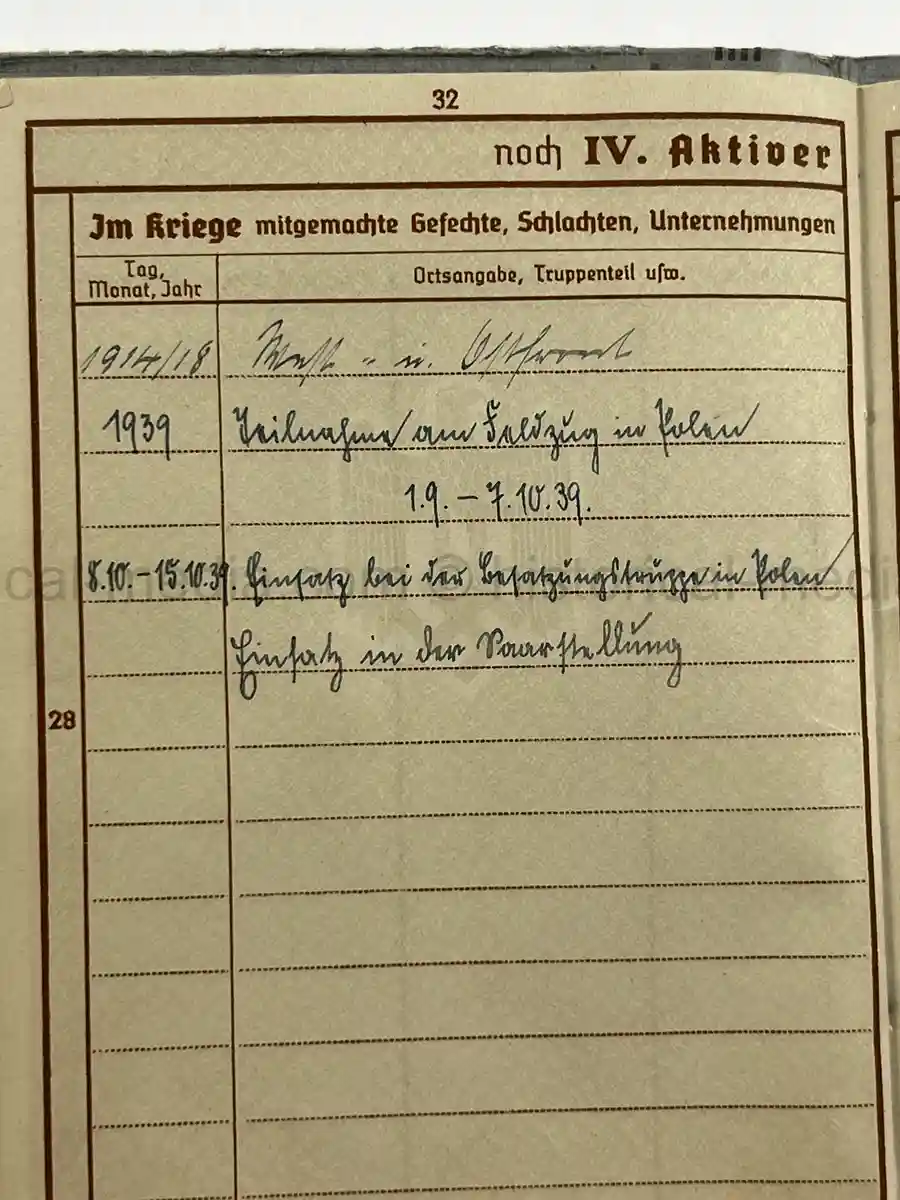 32
noch IV. Aktiver
Im Kriege mitgemachte Gefechte, Schlachten, Unternehmungen
Tag, Monat, Jahr
Ortsangabe, Truppenteil usw.
1914/18 West- u. Ostfront
1939 Teilnahme am Feldzug in Polen
1.9. – 7.10.39.
8.10. – 15.10.39. Einsatz bei der Besatzungstruppe in Polen
Einsatz in der Saarstellung
28